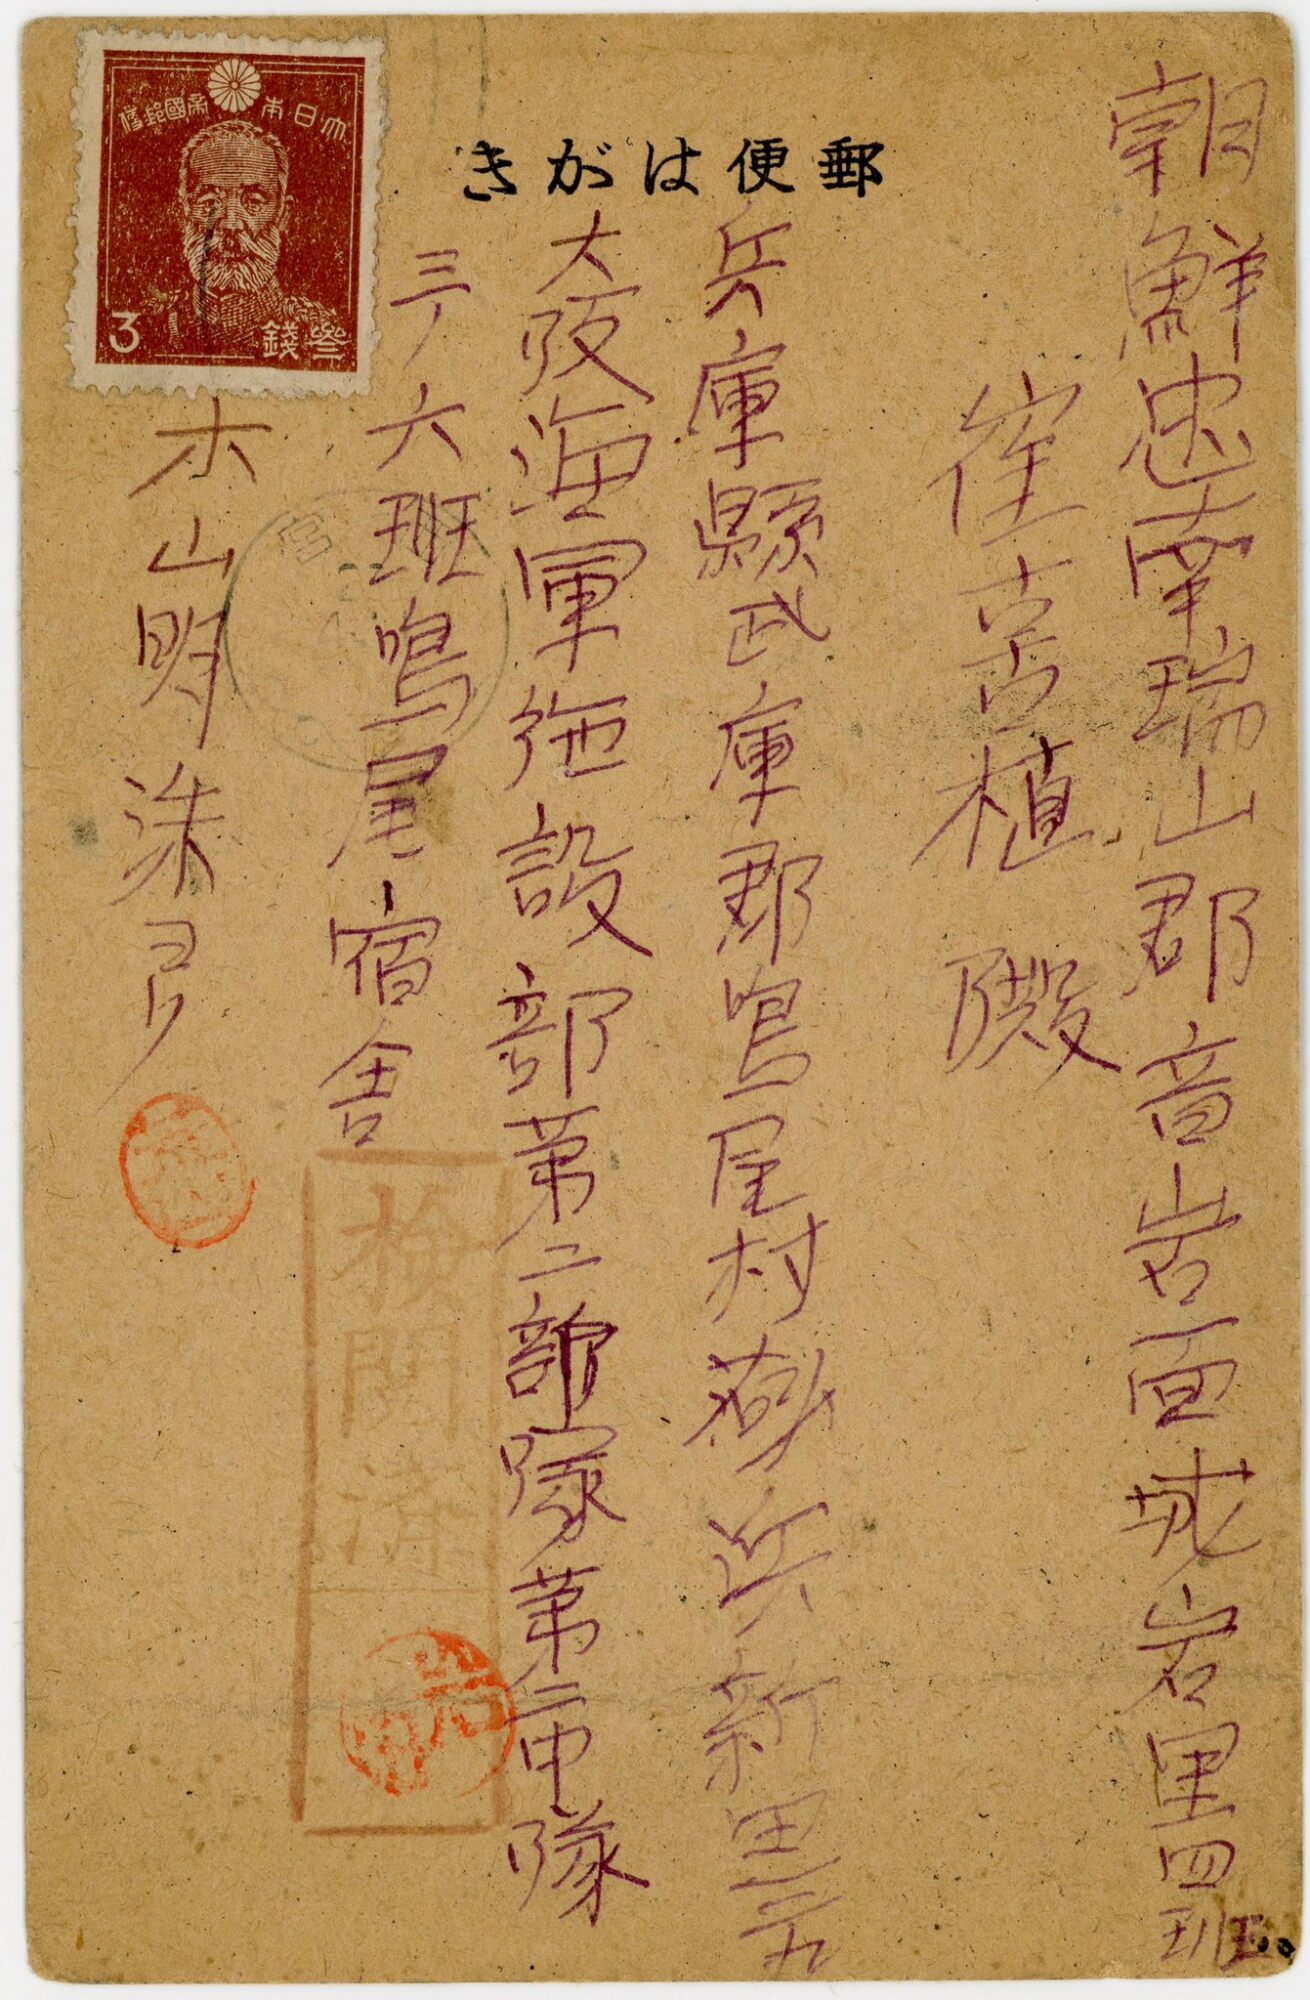 郵便はがき
大日本帝國郵便
3
參錢
朝鮮忠南瑞山郡音岩面城岩里四班
崔喜植殿
兵庫縣武庫郡鳴尾村兵新田
大阪海軍施設部第二部隊第二中隊
三ノ六班鳴尾宿舎
木山明洙ヨリ
検閲濟